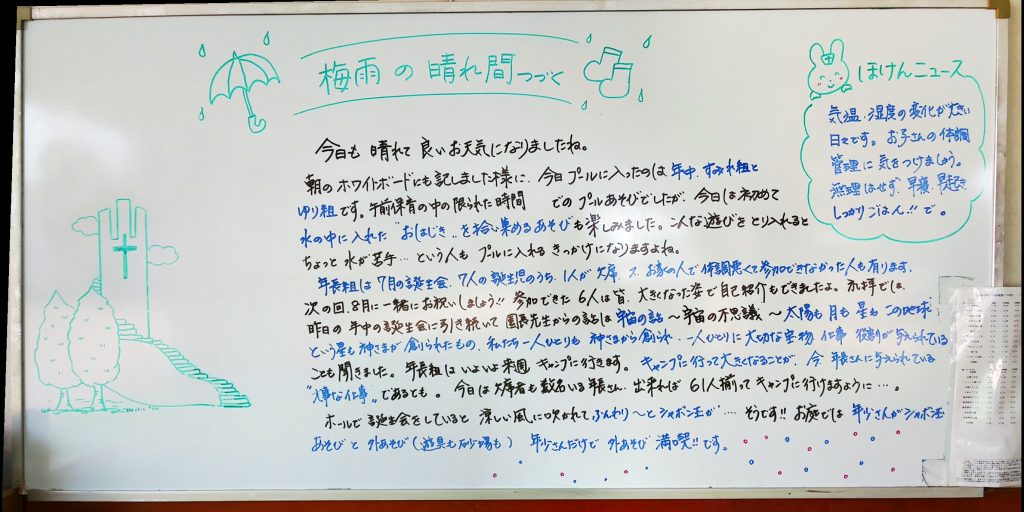 梅雨の晴れ間つづく
ほけんニュース
気温・湿度の変化が大きい
日々です。お子さんの体調
管理に気をつけましょう。
無理はせず、早寝、早起き
しっかりごはん!!で。
今日も晴れて良いお天気になりましたね。
朝のホワイトボードにも記しました様に、今日プールに入ったのは年中、すみれ組と
ゆり組です。午前保育の中の限られた時間 でのプールあそびでしたが、今日は初めて
水の中に入れた"おはじき"を拾い集めるあそびも楽しみました。こんな遊びをとり入れると
ちょっと水が苦手…という人もプールに入れるきっかけになりますよね。
年長組は7月の誕生会、7人の誕生児のうち、1人が欠席、又、お家の人で体調悪くて参加できなかった人も有ります、
次の回、8月に一緒にお祝いしましょう!! 参加できた6人は皆、大きくなった姿で自己紹介もできましたよ。礼拝では、
昨日の年中の誕生会に引き続いて園長先生からの話は宇宙の話〜宇宙の不思議〜太陽も月も星もこの地球
という星も神さまが創られたもの、私たち一人ひとりも神さまから創られ、一人ひとりに大切な宝物、仕事、役割が与えられている
ことも聞きました。年長組はいよいよ来週、キャンプに行きます。キャンプに行って大きくなることが、今、年長さんに与えられている
"大事な仕事"であるとも。今日は欠席者も数名いる年長さん、出来れば61人揃ってキャンプに行けますように…。
ホールで誕生会をしていると涼しい風に吹かれてふんわり〜とシャボン玉が…。そうです!! お庭では年少さんがシャボン玉
あそびと外あそび(遊具も砂場も) 年少さんだけで外あそび満喫!!です。